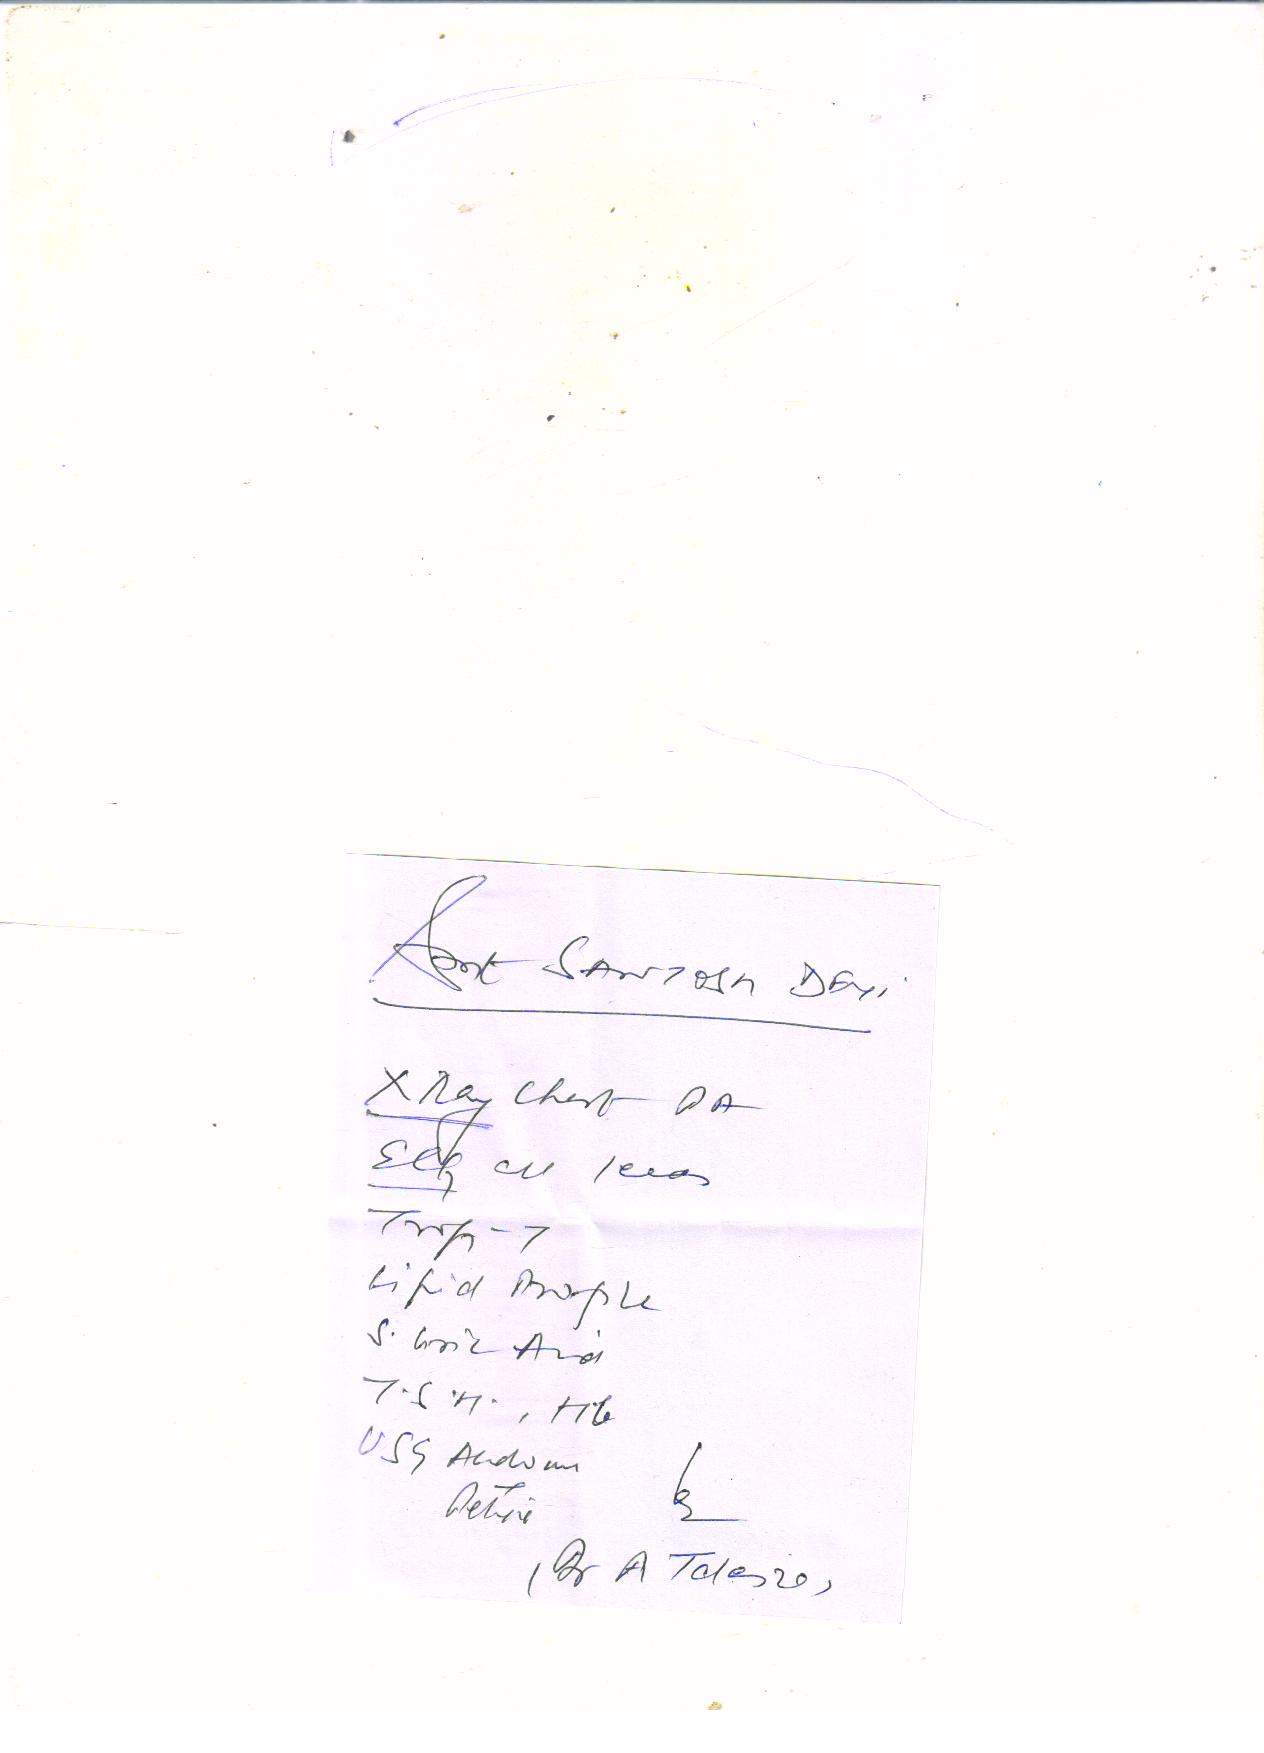 Smt SANTOSH DEVI
X Ray Chest PA
ECG all leads
Trop-T
Lipid Profile
S. Uric Acid
T.S.H., Hb
USG Abdomen
Pelvis
(Dr A